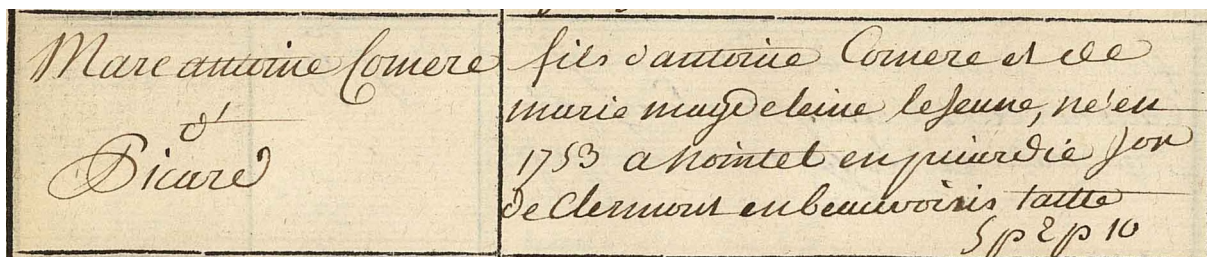 Marc antoine Comere
d'
Picard
fils d'antoine Comere et de
marie magdeleine lejeune, né en
1753 a Nointel en picardie Jon
de Clermont en beauvoisis taille
5 p 2 p 10